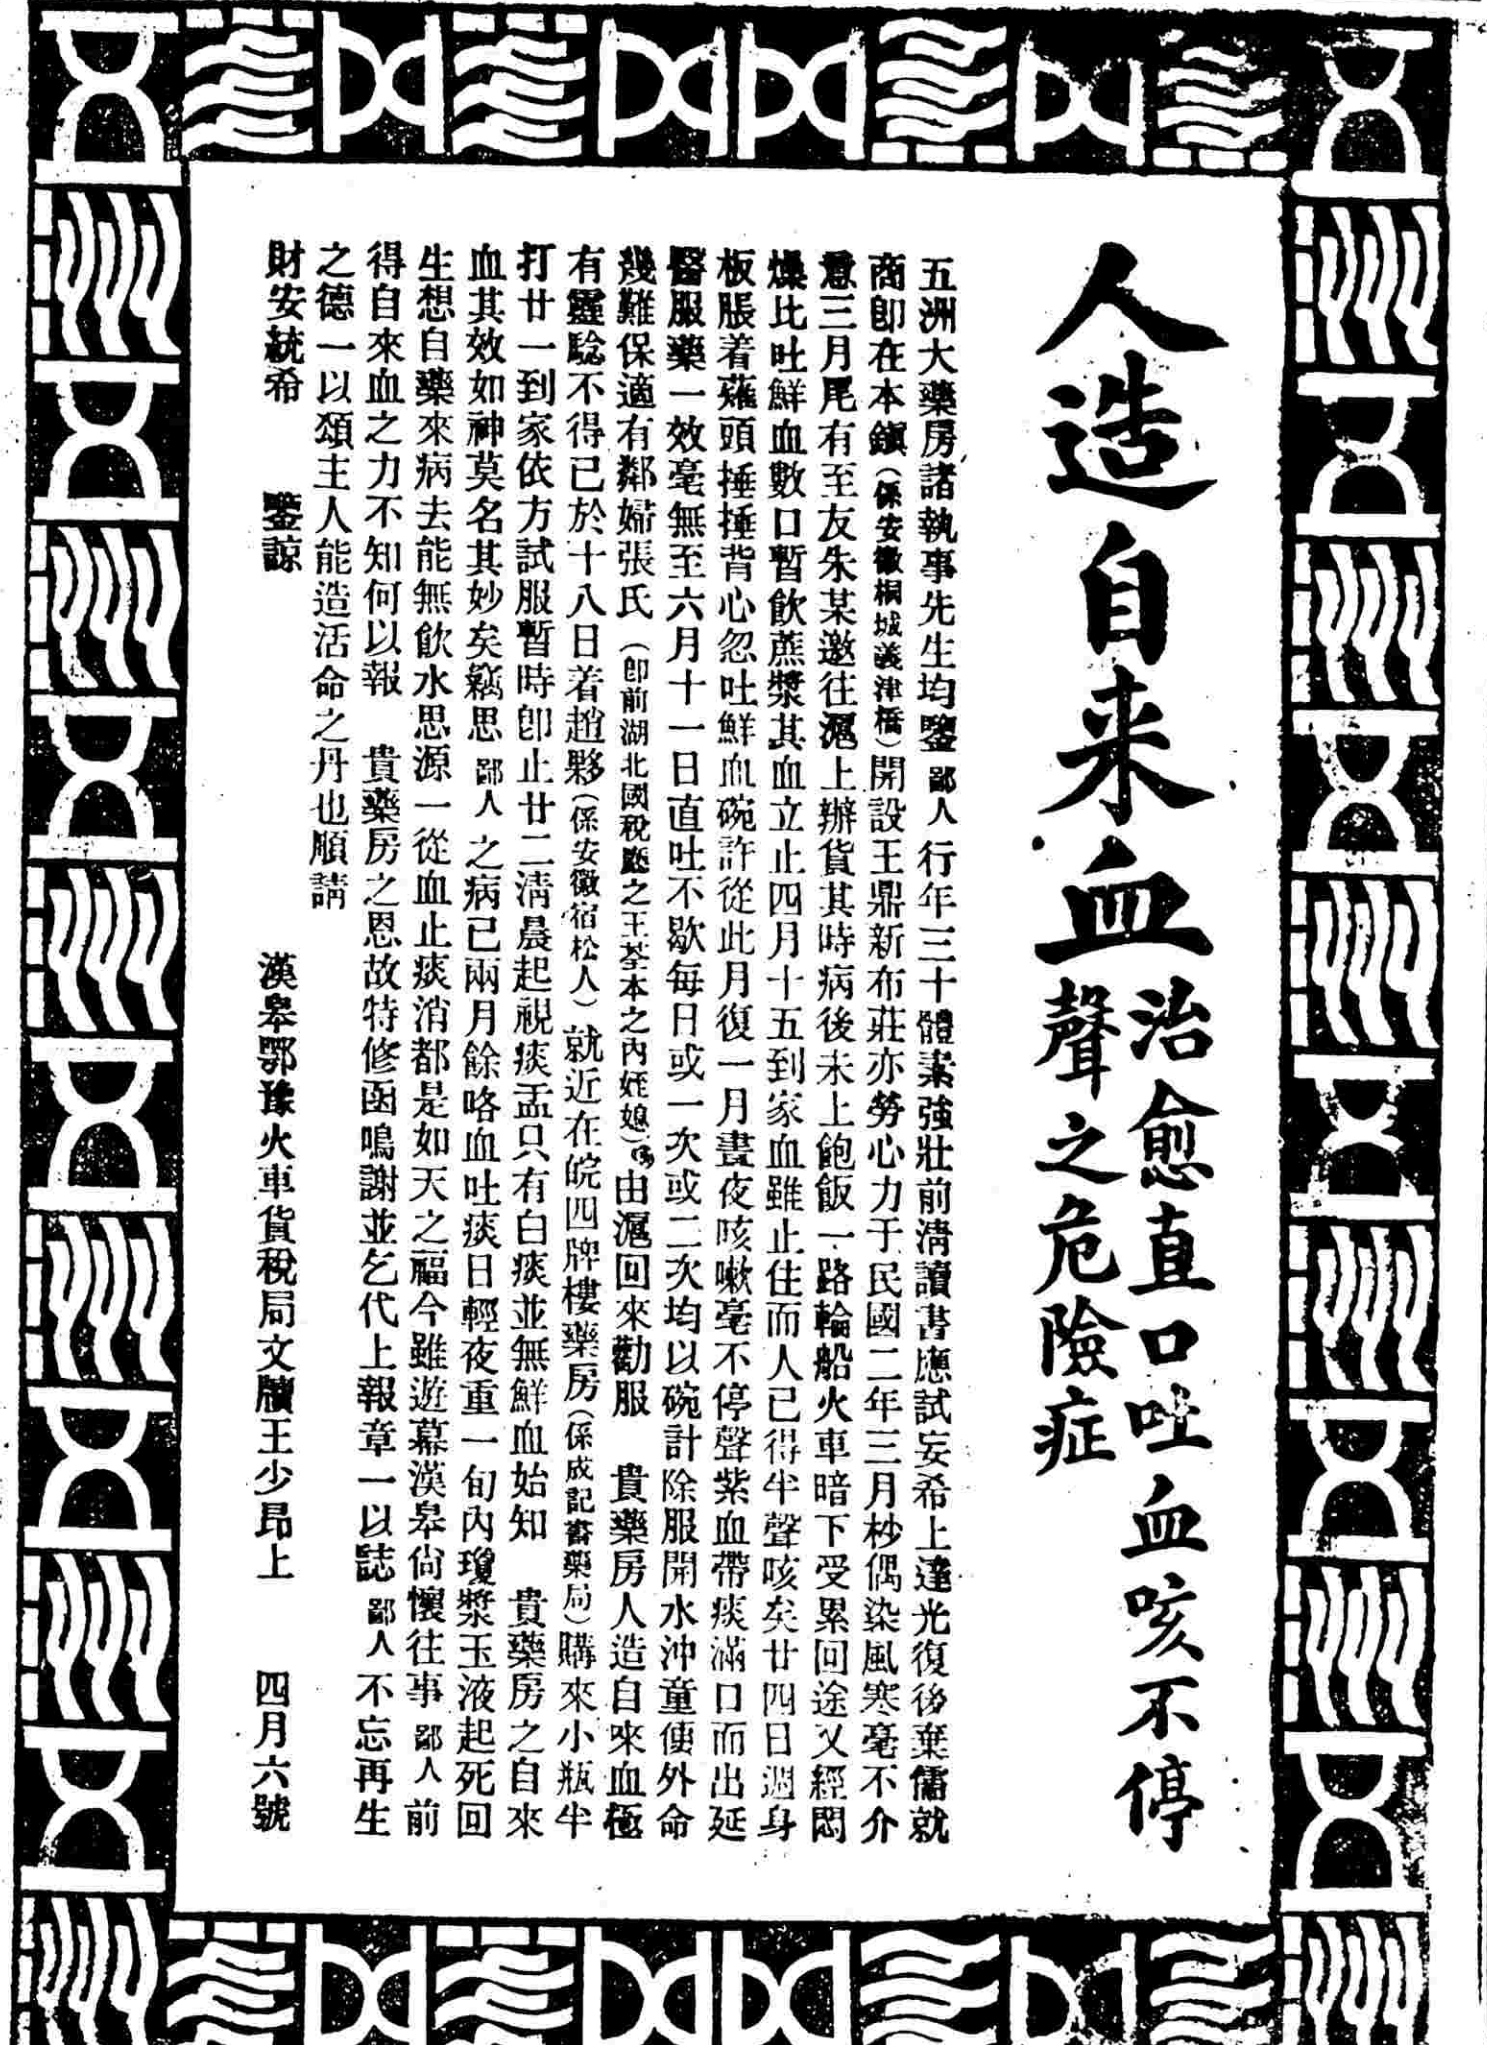 人造自来血
治愈直口吐血咳不停
聲之危險症
五洲大藥房諸執事先生均鑒鄙人行年三十體素強壯前淸讀書應試妄希上達光復後棄儒就
商卽在本鎭(係安徽桐城義津橋)開設王鼎新布莊亦勞心力于民國二年三月杪偶染風寒毫不介
意三月尾有至友朱某邀往滬上辦貨其時病後未上飽飯一路輪船火車暗下受累回途又經悶
燥比吐鮮血數口暫飮蔗漿其血立止四月十五到家血雖止住而人已得半聲咳矣廿四日週身
板脹着薙頭捶捶背心忽吐鮮血碗許從此月復一月晝夜咳嗽毫不停聲紫血帶痰滿口而出延
醫服藥一效毫無至六月十一日直吐不歇每日或一次或二次均以碗計除服開水沖童便外命
幾難保適有鄰婦張氏(卽前湖北國稅廳之王荃本之內姪媳)由滬回來勸服 貴藥房人造自來血極
有靈驗不得已於十八日着趙夥(係安徽宿松人)就近在皖四牌樓藥房(係成記書藥局)購來小瓶半
打廿一到家依方試服暫時卽止廿二淸晨起視痰盂只有白痰並無鮮血始知 貴藥房之自來
血其效如神莫名其妙矣竊思鄙人之病已兩月餘咯血吐痰日輕夜重一旬內瓊漿玉液起死回
生想自藥來病去能無飮水思源一從血止痰消都是如天之福今雖遊幕漢皋尙懷往事鄙人前
得自來血之力不知何以報 貴藥房之恩故特修函鳴謝並乞代上報章一以誌鄙人不忘再生
之德一以頌主人能造活命之丹也順請
財安統希 鑒諒
漢皋鄂豫火車貨稅局文牘王少昂上 四月六號